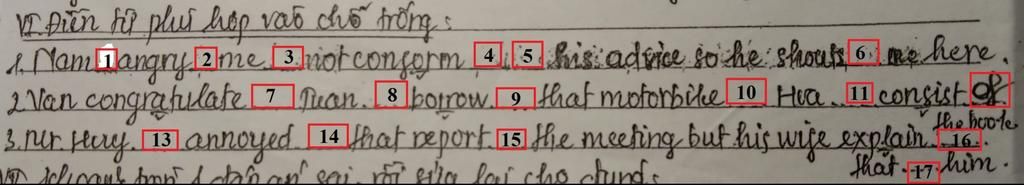 VI. Điền từ phù hợp vào chỗ trống:
1. Nam 1 angry 2 me 3 not conform 4 5 his advice so he shouts 6 me here.
2. Van congratulate 7 Tuan. 8 borrow 9 that motorbike 10 Hoa. 11 consist of
3. Mr Huy. 13 annoyed 14 that report 15 the meeting but his wife explain 16
the book
that 17 him.
sai, rồi sửa lại cho đúng: